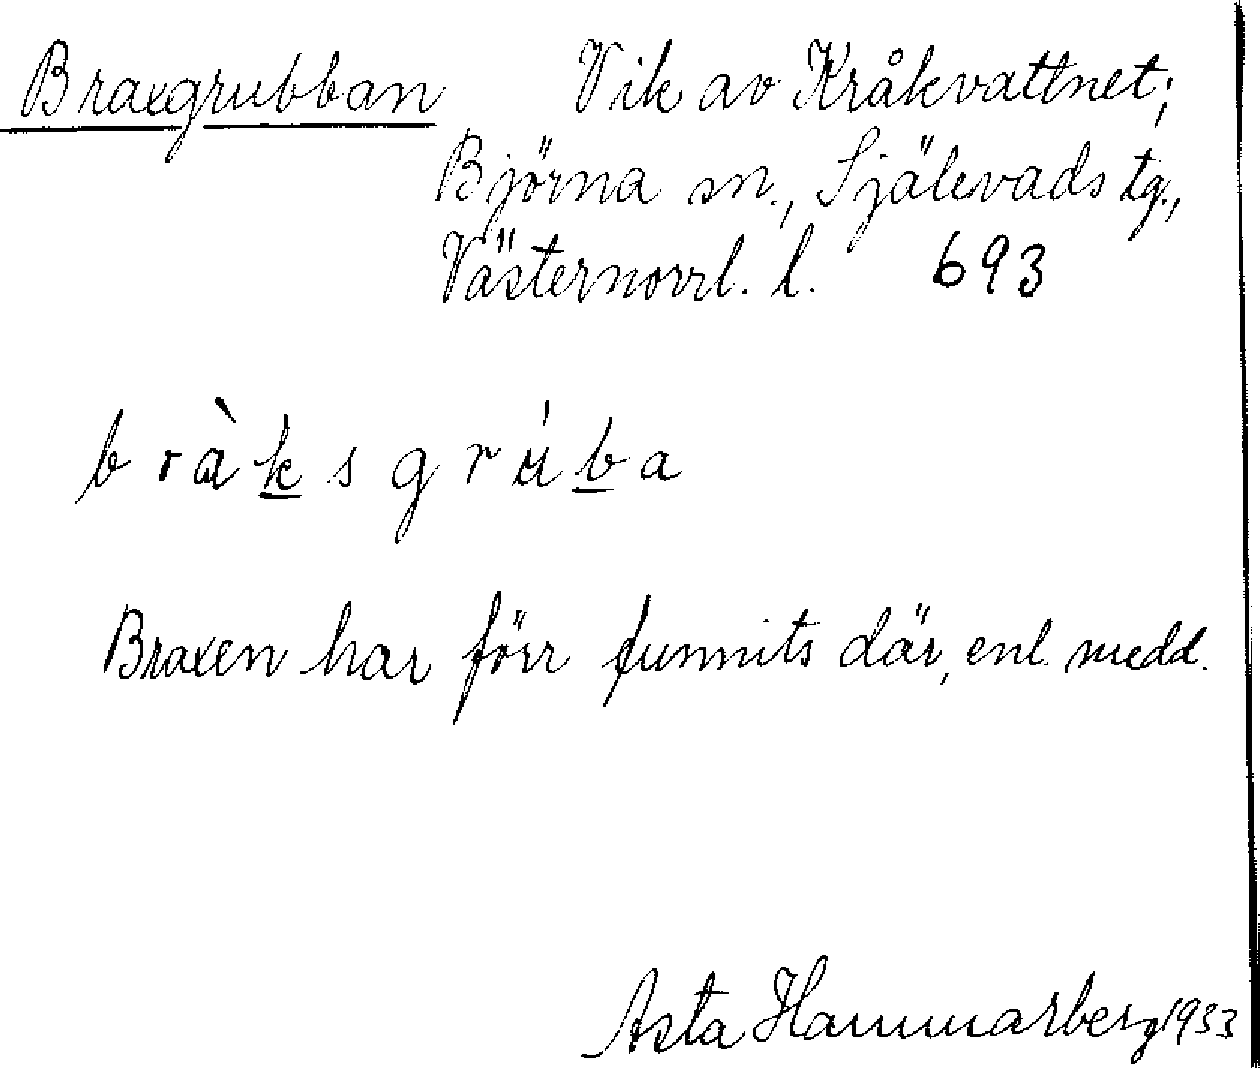 Braxgrubban Vik av Kråkvattnet;
Björna sn., Själevads tg.,
Västernorrl. l. 693
bràksgrúba
Braxen har förr funnits där, enl. medd.
Asta Hammarberg 1933